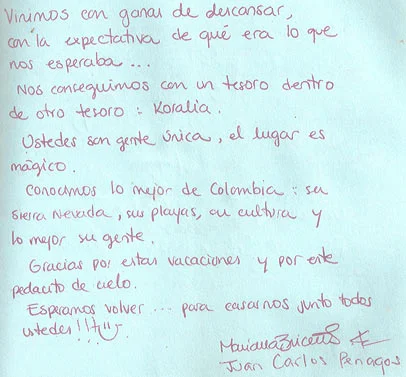 Vinimos con ganas de descansar,
con la expectativa de qué era lo que
nos esperaba...
Nos conseguimos con un tesoro dentro
de otro tesoro: Koralia.
Ustedes son gente única, el lugar es
mágico.
Conocimos lo mejor de Colombia: su
Sierra Nevada, sus playas, su cultura y
lo mejor su gente.
Gracias por estas vacaciones y por este
pedacito de cielo.
Esperamos volver... para casarnos junto todos
ustedes!!!
Mariana Briceño
Juan Carlos Penagos